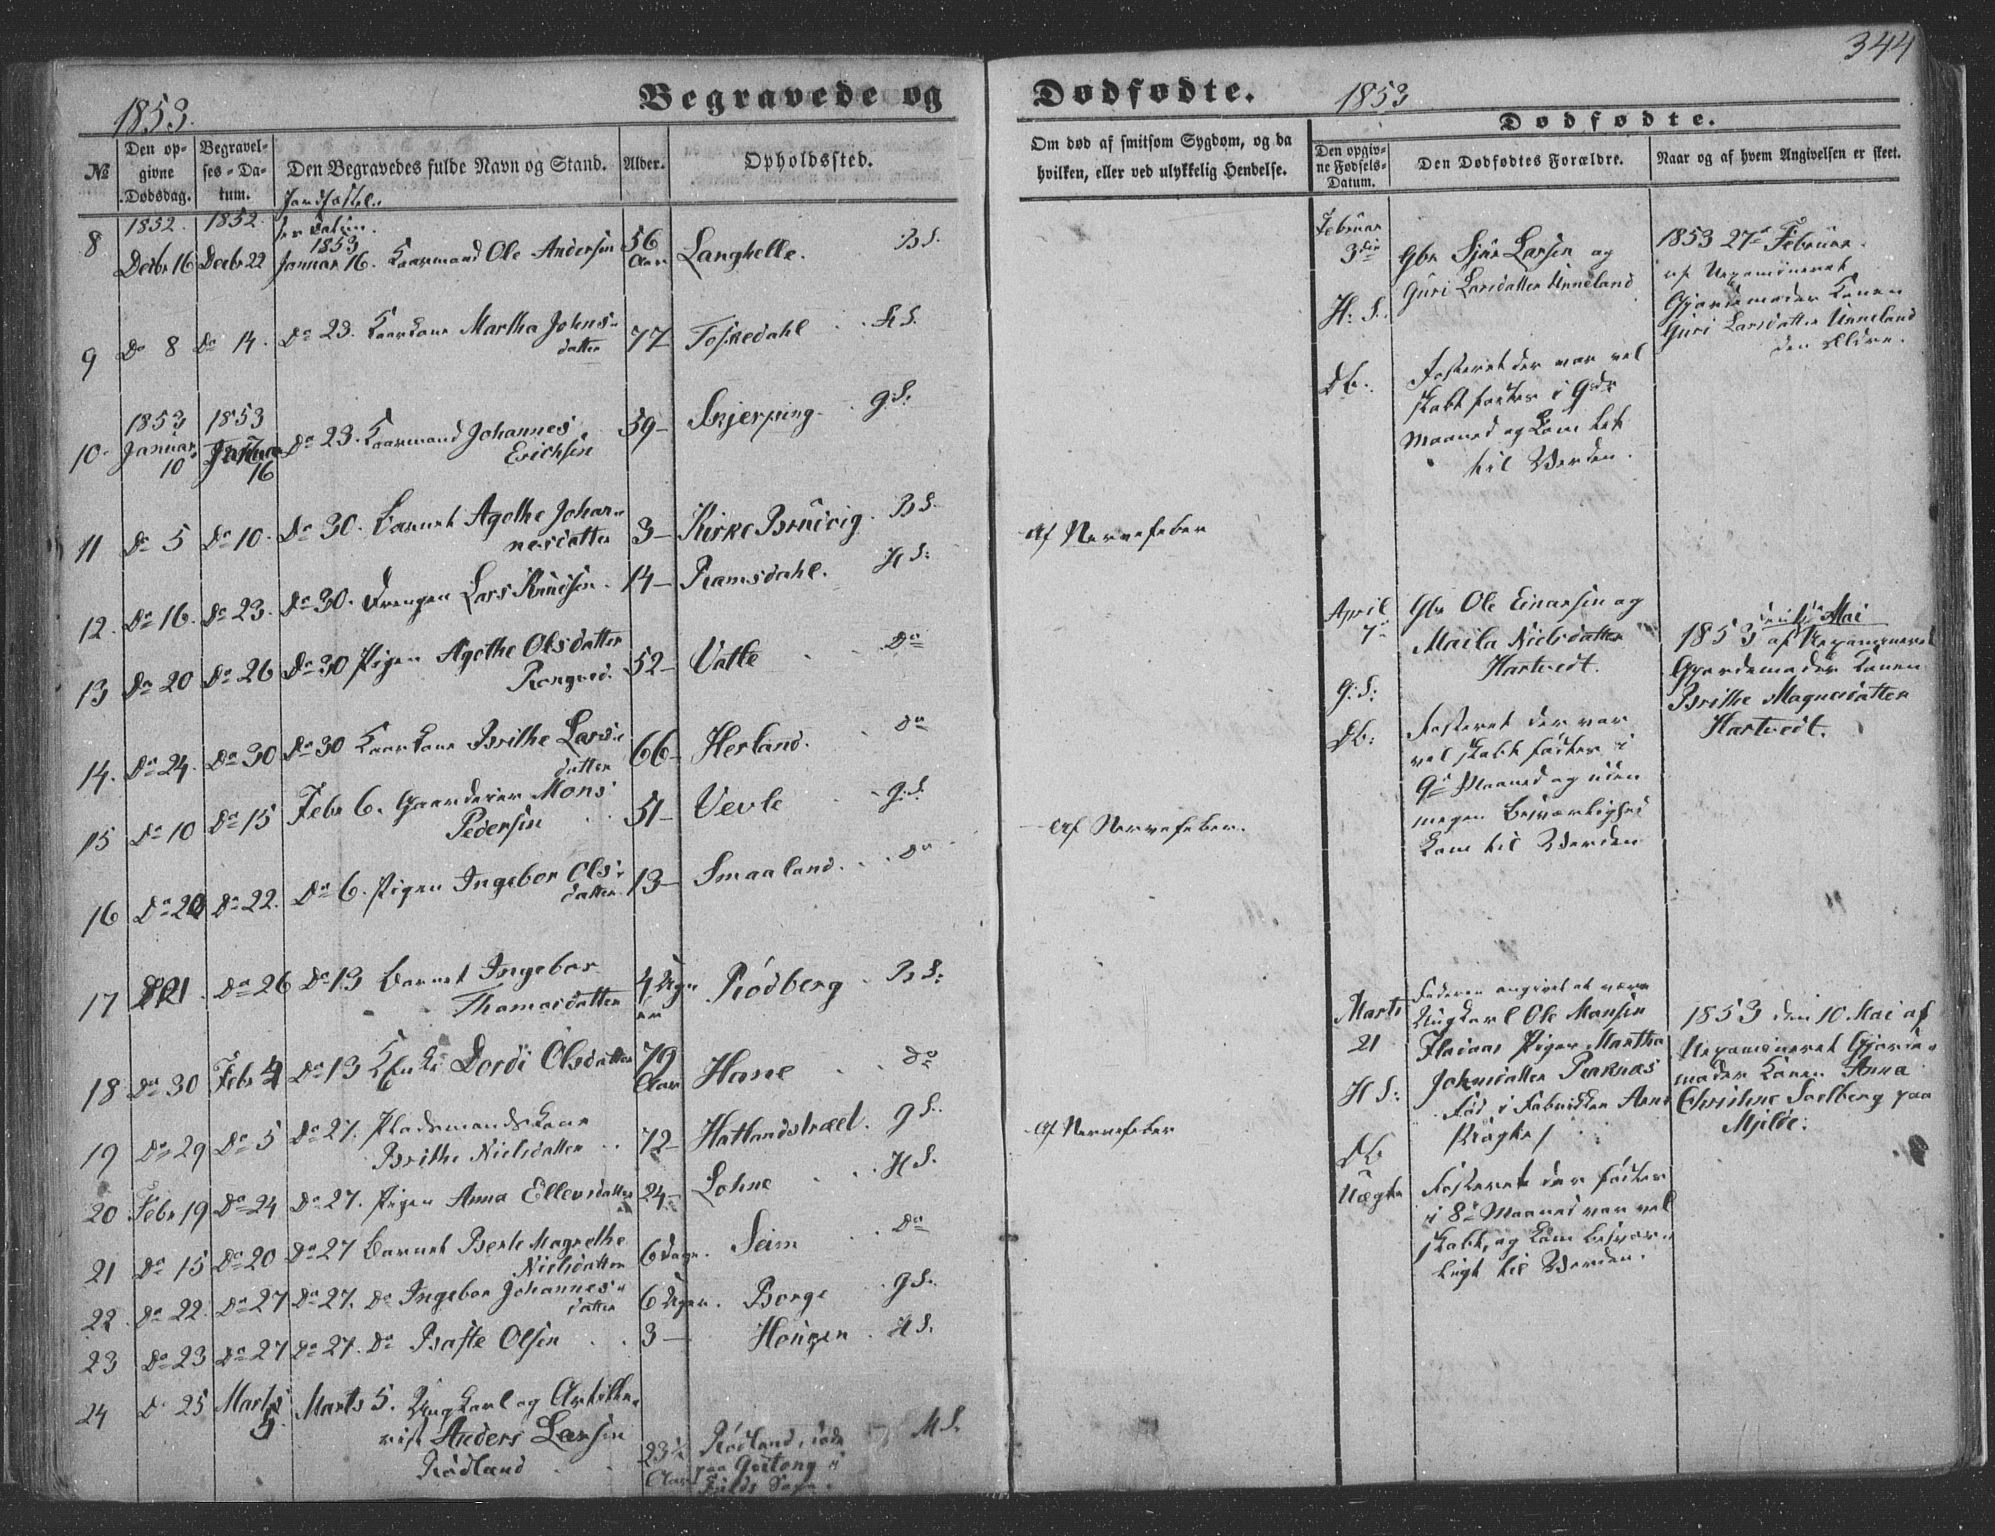 344
1853.
Begravede og
Dødfødte.
1853
№
Den op-
givne
Dødsdag.
Begravel-
ses-Da-
tum.
Den Begravedes fulde Navn og Stand.
Alder.
Opholdssted.
Om død af smitsom Sygdom, og da
hvilken, eller ved ulykkelig Hendelse.
Dødfødte.
Den opgiv-
ne Fødsels-
Datum.
Den Dødfødtes Forældre.
Naar og af hvem Angivelsen er skeet.
Jordfæstel-
1852. 1852. 1853
8 Decbr 16 Decbr 22 Januar 16. Kaarmand Ole Andersen 56 Aar Langhelle. B S.
9 Do 8 Do 14. Do 23. Kaarkone Martha Johns-
datter 77 Toskedahl H S.
1853 1853
10. Januar 10 Januar 16 Do 23. Kaarmand Johannes
Erichsen 59 Skjerping. G S.
11 Do 5 Do 10. Do 30. Barnet Agethe Johan-
nesdatter 3 Kirke Bruvig. B S. Af Nervefeber
12. Do 16. Do 23. Do 30. Drengen Lars Knudsen. 14 Ramsdahl. H S.
13 Do 20 Do 26 Do 30 Pigen Agethe Olsdatter
52 Vatle Do
14. Do 24. Do 30 Do 30 Kaarkone Brithe Lars-
datter 66 Herland. Do
15 Do 10 Do 15 Febr 6. Gaardeier Mons
Pedersen 51 Vevle G. S. Af Nervefeber.
16 Do 20 Do 22. Do 6. Pigen Ingebor Ols-
datter. 13 Smaaland. Do
17 21. Do 26 Do 13 Barnet Ingebor
Thomasdatter 4 Uger Rødberg B S.
18 Do 30 Febr 4 Do 13 Dordi Olsdatter 79 Aar Hane Do
19 Do 29 Do 5 Do 27. Pladsmandskone
Brithe Nielsdatter 72 Hatlandstræet. G S. Af Nervefeber
20 Febr 19 Do 24 Do 27. Pigen Anna Ellevsdatter 24 Lohne H S.
21 Do 15 Do 20 Do 27 Barnet Berte Magrethe
Nielsdatter 6 Dage. Seim Do
22 Do 22. Do 27 Do 27. Do Ingebor Johannes-
datter 6 Uger. Borge G S.
23 Do 23 Do 27 Do 27. Do Olsen 3 Hougen H S.
24 D 25 Marts 5. Marts 5. Ungkarl og Artille-
rist Anders Larsen
Rødland 23½ Aar Rødland, død
paa i
Sogn. H S.
Februar
3die
H: S.
Gbr Sjur Larsen og
Guri Larsdatter Unneland
1853 27de Februar
af Uexamineret
Gjordemoder Konen
Guri Larsdatter Unneland
den Ældre.
Db.
Fosteret der var vel
skabt fødtes i 9de
Maaned og kom let
til Verden.
April
7de
G: S:
Gbr Ole Einarsen og
Maila Nielsdatter
Hartvedt.
Mai
1853 af Uexamineret
Gjordemoder Konen
Brithe Magnesdatter
Hartvedt.
Db:
Fosteret der var
vel skabt fødtes i
9de Maaned og uden
megen Besværlighed
kom til Verden
Marts
21
H S:
Faderen angivet at være
Ungkarl Ole Monsen
Fladaas Pigen Martha
Johnsdatter Raknes
Fød i Fabrikken Arne
1853 den 10 Mai af
Uexamineret Gjorde-
moder Konen Anna
Christine Soelberg paa
Mjelde.
Db
Uægte
Fosteret der fødtes
i 8de Maaned var vel
skabt, og kom besvær-
ligt til Verden.